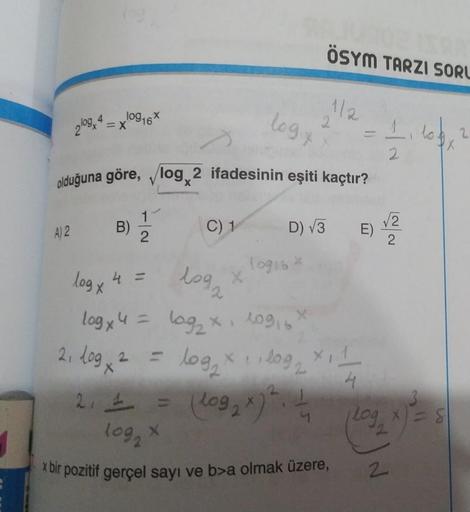 ÖSYM TARZI SORU
2^{log_x 4} = x^{log_{16} x}
log_x 2^{1/2} = 1/2 . log_x 2
olduğuna göre, √(log_x 2) ifadesinin eşiti kaçtır?
A) 2 B) 1/2 C) 1 D) √3 E) √2/2
log_x 4 = log_2 x^{log_{16} x}
log_x 4 = log_2 x . log_{16} x
2 . log_x 2 = log_2 x . log_2 x . 1/4
2 . 1/(log_2 x) = (log_2 x)^2 . 1/4
(log_2 x)^3 = 8
2
x bir pozitif gerçel sayı ve b>a olmak üzere,